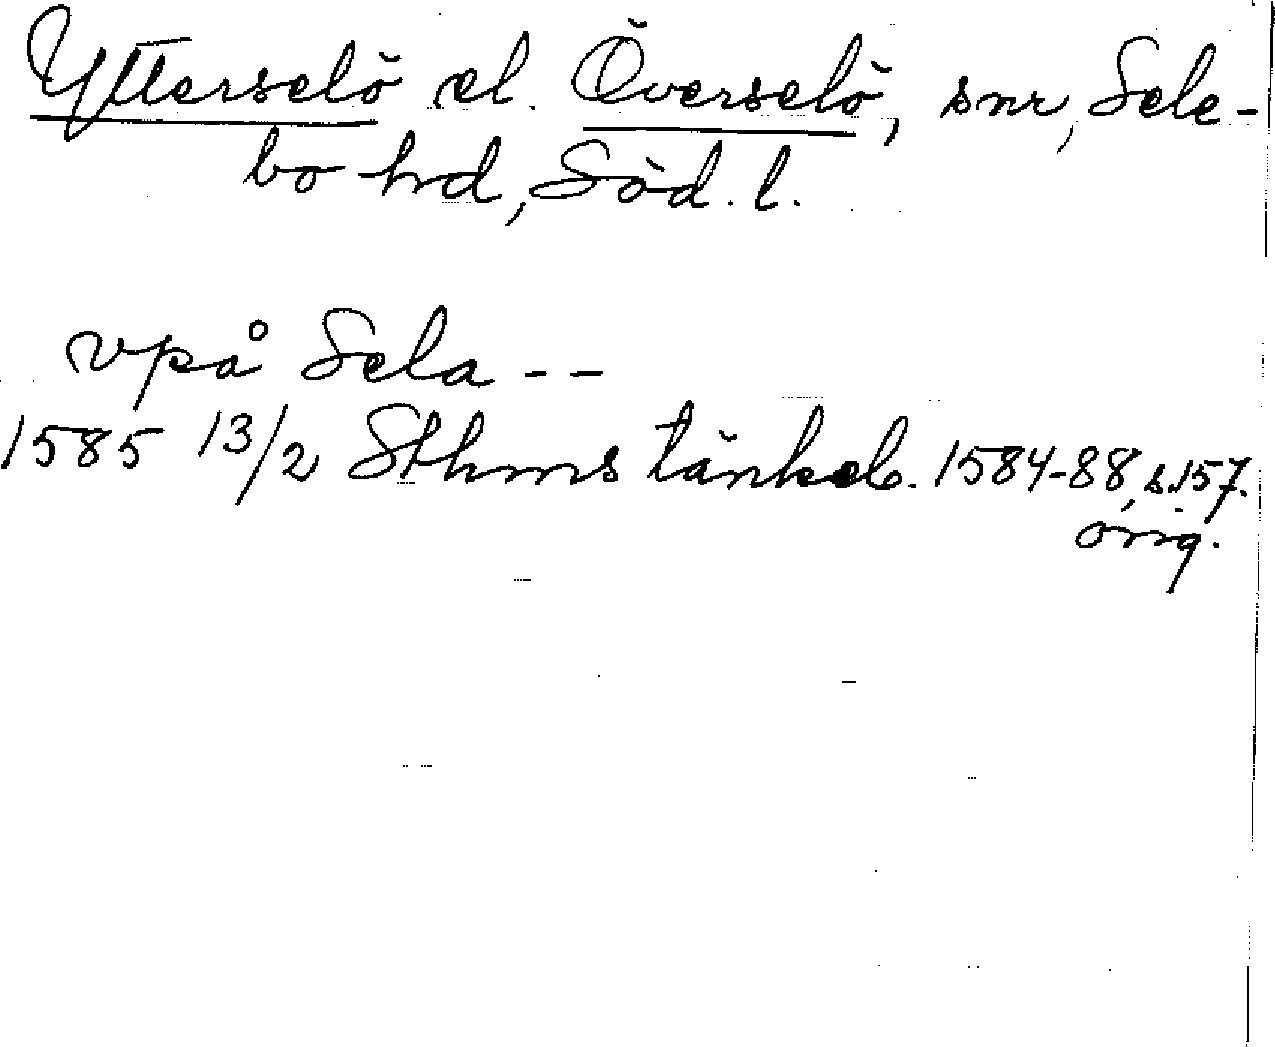 Ytterselö el. Överselö, snr, Sele-
bo hrd, Söd. l.
vpå Sela --
1585 13/2 Sthms tänkeb. 1584-88, s. 157.
orig.